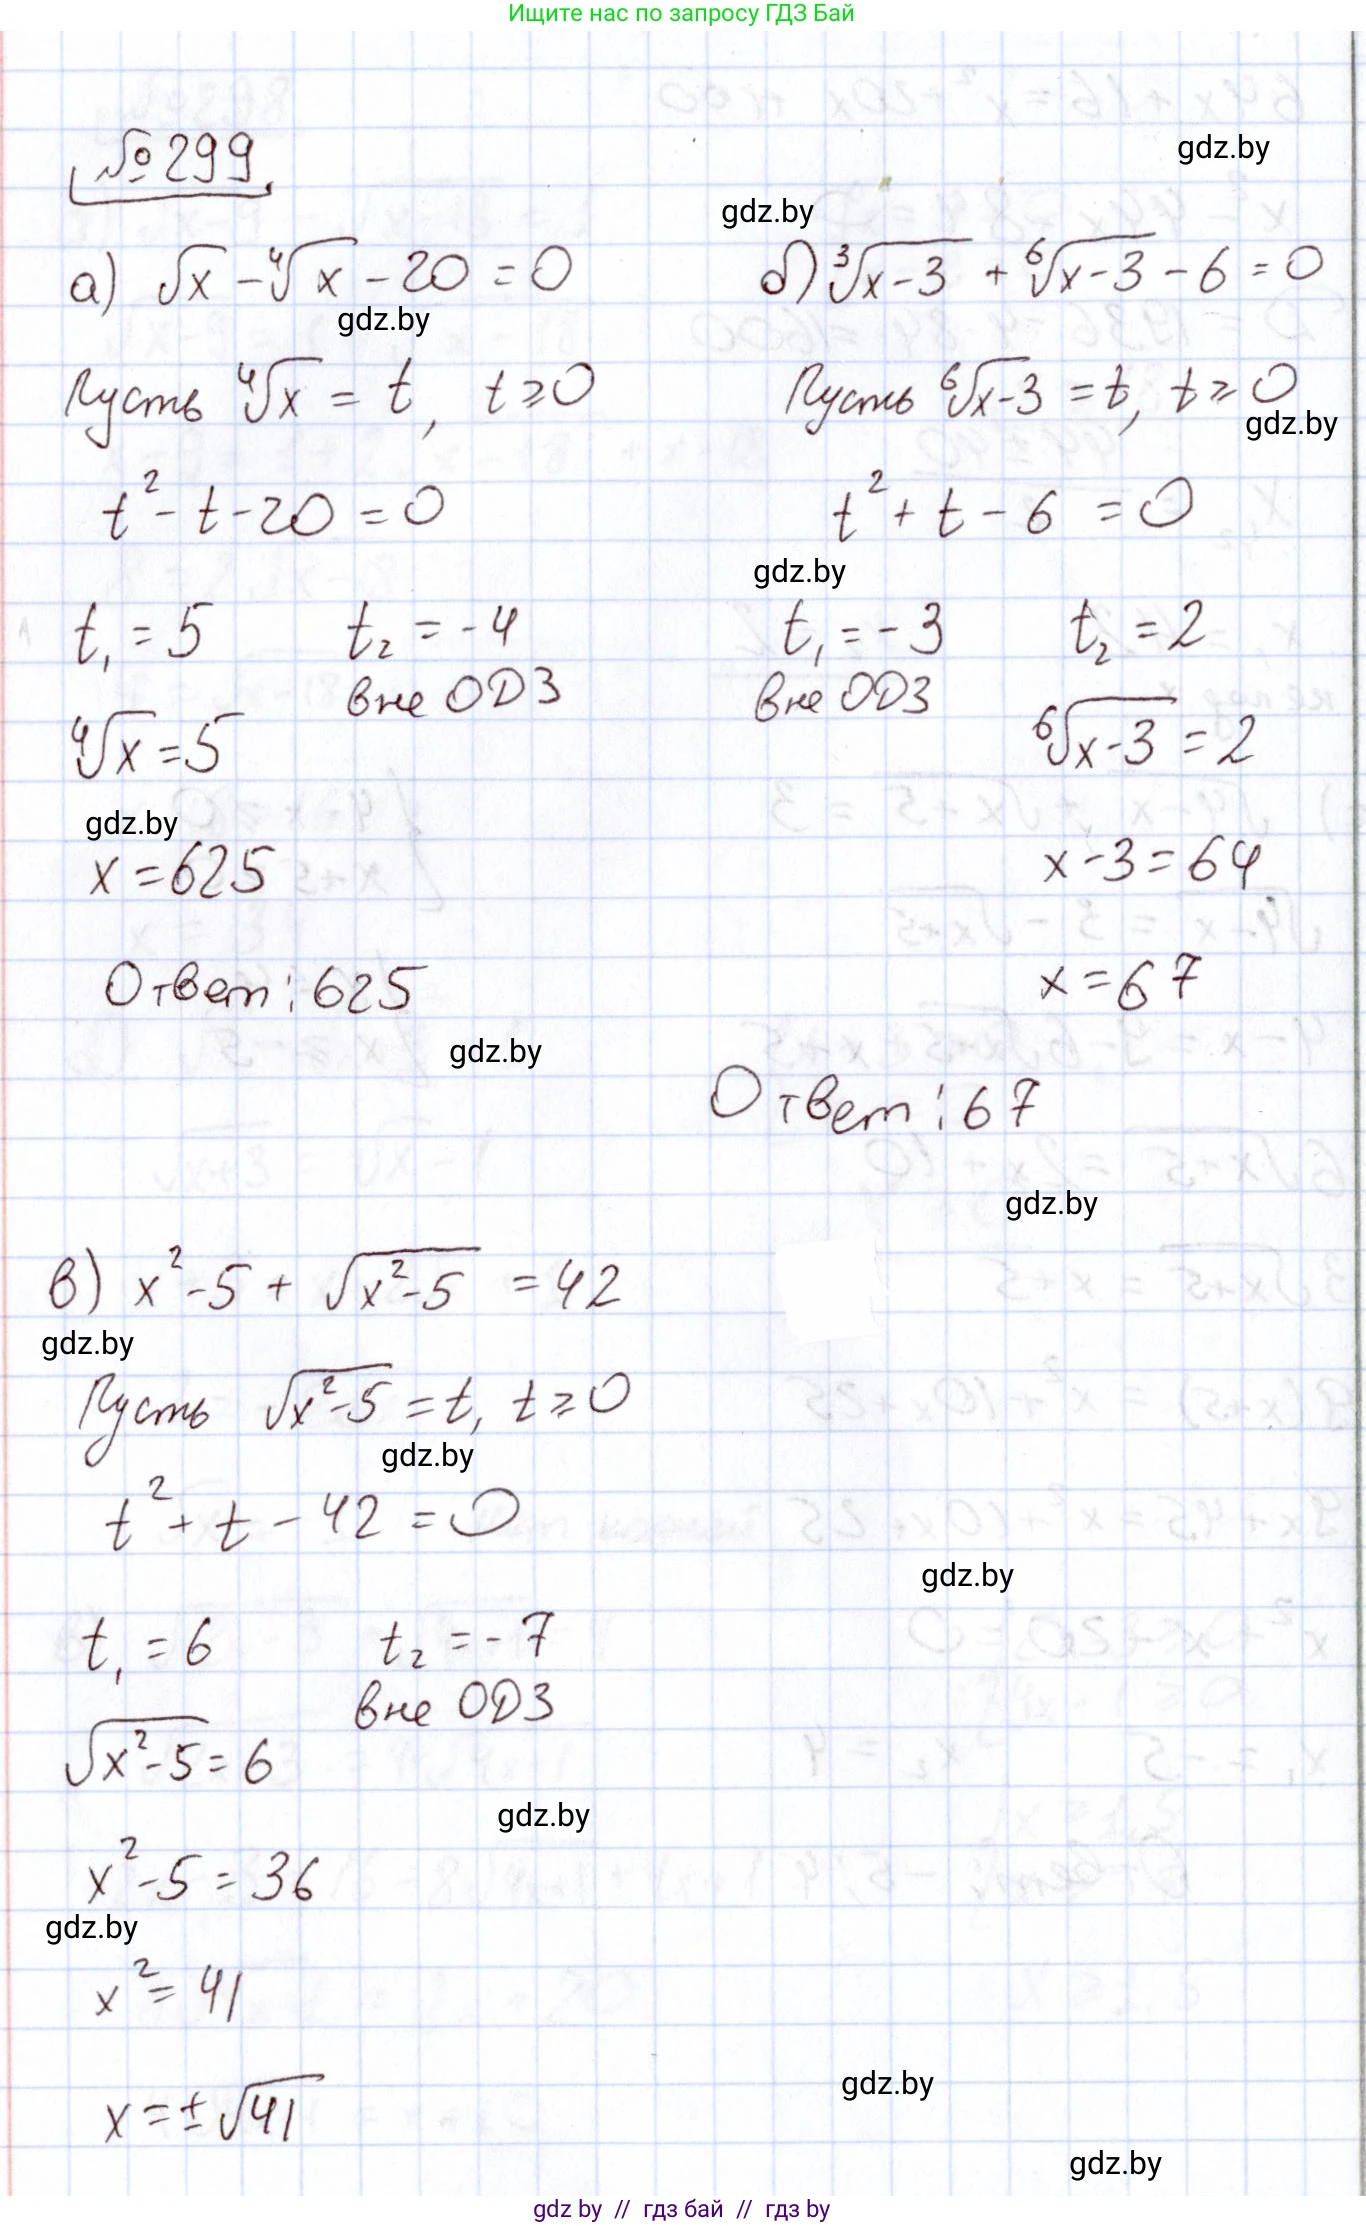 Ищите нас по запросу ГДЗ Бай
№299
gdz.by
gdz.by
а) √x - ⁴√x - 20 = 0
gdz.by
Пусть ⁴√x = t, t ≥ 0
t² - t - 20 = 0
t₁ = 5 t₂ = -4
вне ОДЗ
⁴√x = 5
gdz.by
x = 625
Ответ: 625
gdz.by
б) ³√x-3 + ⁶√x-3 - 6 = 0
Пусть ⁶√x-3 = t, t ≥ 0
gdz.by
t² + t - 6 = 0
gdz.by
t₁ = -3 t₂ = 2
вне ОДЗ
⁶√x-3 = 2
x - 3 = 64
x = 67
Ответ: 67
gdz.by
в) x² - 5 + √x²-5 = 42
gdz.by
Пусть √x²-5 = t, t ≥ 0
gdz.by
t² + t - 42 = 0
gdz.by
t₁ = 6 t₂ = -7
вне ОДЗ
√x²-5 = 6
gdz.by
x² - 5 = 36
gdz.by
x² = 41
gdz.by
x = ±√41
gdz.by
gdz by // гдз бай // гдз by